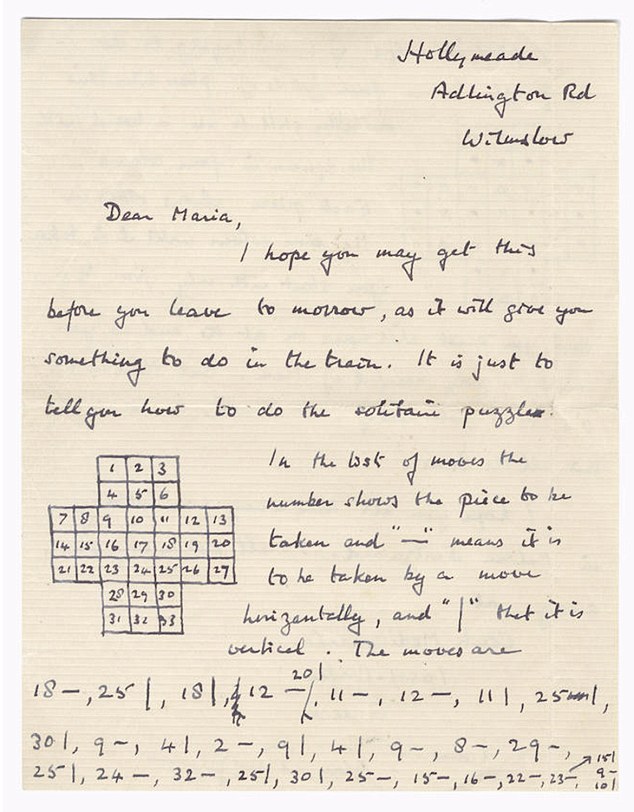 Hollymeade
Adlington Rd
Wilmslow
Dear Maria,
I hope you may get this
before you leave to morrow, as it will give you
something to do in the train. It is just to
tell you how to do the solitaire puzzle.
1 2 3
4 5 6
7 8 9 10 11 12 13
14 15 16 17 18 19 20
21 22 23 24 25 26 27
28 29 30
31 32 33
In the list of moves the
number shows the piece to be
taken and "—" means it is
to be taken by a move
horizontally, and "|" that it is
vertical. The moves are
20|
18 —, 25 |, 18 |, 12 —, 11 —, 12 —, 11 |, 25 |,
30 |, 9 —, 4 |, 2 —, 9 |, 4 |, 9 —, 8 —, 29 —,
25 |, 24 —, 32 —, 25 |, 30 |, 25 —, 15 —, 16 —, 22 —, 23 —
15 |
9 —
10 |